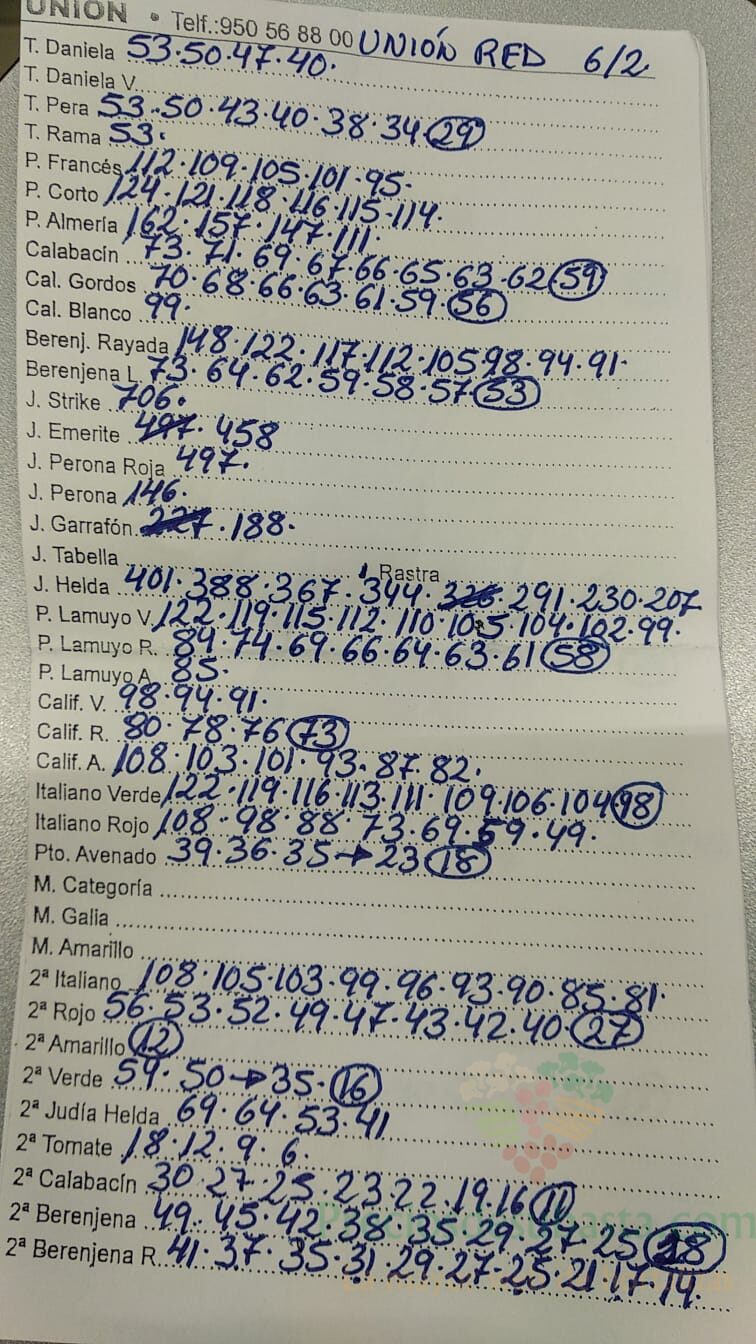 UNIÓN • Telf.:950 56 88 00 UNIÓN RED 6/2
T. Daniela 53·50·47·40·
T. Daniela V.
T. Pera 53·50·43·40·38·34 29
T. Rama 53·
P. Francés 112·109·105·101·95·
P. Corto 124·121·118·116·115·114·
P. Almería 162·157·147·111·
Calabacín 73·71·69·67·66·65·63·62 59
Cal. Gordos 70·68·66·63·61·59· 56
Cal. Blanco 99·
Berenj. Rayada 148·122·117·112·105·98·94·91·
Berenjena L 73·64·62·59·58·57 53
J. Strike 706·
J. Emerite 497· 458
J. Perona Roja 497·
J. Perona 146·
J. Garrafón 227·188·
J. Tabella J. Rastra
J. Helda 401·388·367·344·326·291·230·207
P. Lamuyo V. 122·119·115·112·110·105·104·102·99·
P. Lamuyo R. 84·74·69·66·64·63·61 58
P. Lamuyo A. 85·
Calif. V. 98·94·91·
Calif. R. 80·78·76 73
Calif. A. 108·103·101·93·87·82·
Italiano Verde 122·119·116·113·111·109·106·104 98
Italiano Rojo 108·98·88·73·69·59·49·
Pto. Avenado 39·36·35→23 18
M. Categoría
M. Galia
M. Amarillo
2ª Italiano 108·105·103·99·96·93·90·85·81·
2ª Rojo 56·53·52·49·47·43·42·40 27
2ª Amarillo 12
2ª Verde 59·50→35· 16
2ª Judía Helda 69·64·53·41
2ª Tomate 18·12·9·6·
2ª Calabacín 30·27·25·23·22·19·16 11
2ª Berenjena 49·45·42·38·35·29·27·25 18
2ª Berenjena R. 41·37·35·31·29·27·25·21·17·14·